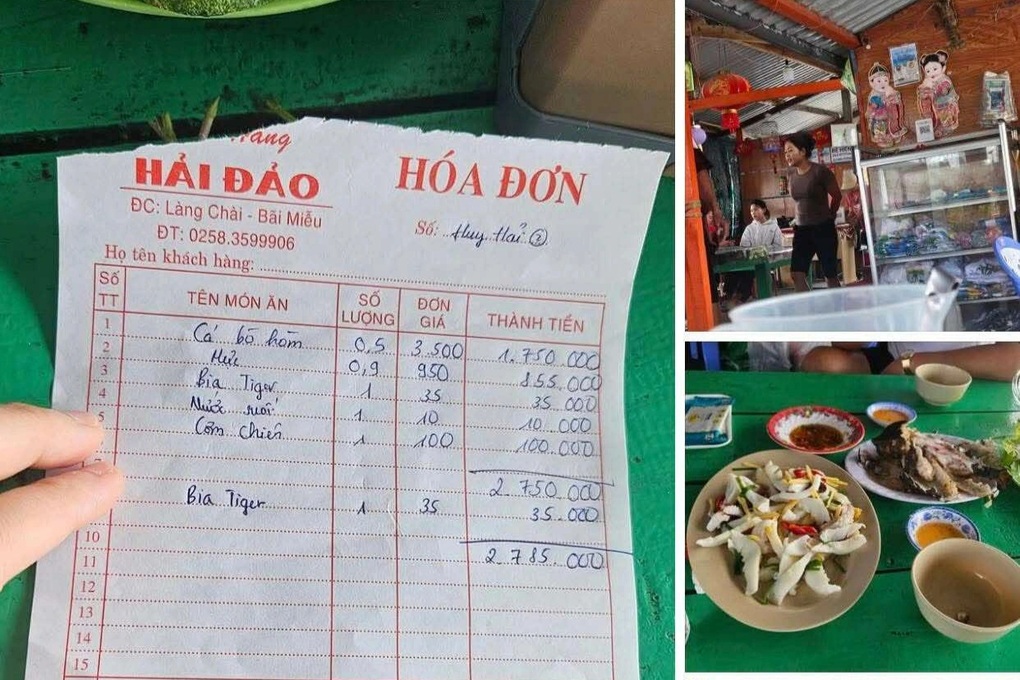 HẢI ĐẢO
HÓA ĐƠN
ĐC: Làng Chài - Bãi Miễu
ĐT: 0258.3599906
Số: Huy Hải 2
Họ tên khách hàng:
Số TT TÊN MÓN ĂN SỐ LƯỢNG ĐƠN GIÁ THÀNH TIỀN
1 Cá bò hòm 0,5 3.500 1.750.000
2 Mực 0,9 950 855.000
3 Bia Tiger 1 35 35.000
4 Nước suối 1 10 10.000
5 Cơm chiên 1 100 100.000
2.750.000
Bia Tiger 1 35 35.000
2.785.000
10
11
12
13
14
15